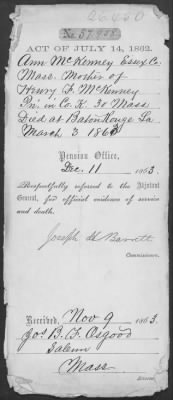 26.450
No. 37.908
ACT OF JULY 14, 1862.
Ann McKenney Essex Co.
Mass. Mother of
Henry F. McKinney
Pri. in Co. K. 30 Mass
Died at Baton Rouge La
March 3 1863
Pension Office,
Dec. 11 1863
Respectfully referred to the Adjutant
General, for official evidence of service
and death.
Joseph H Barrett
Commissioner.
Received, Nov 9 1863.
Jos. B. F. Osgood
Salem
Mass